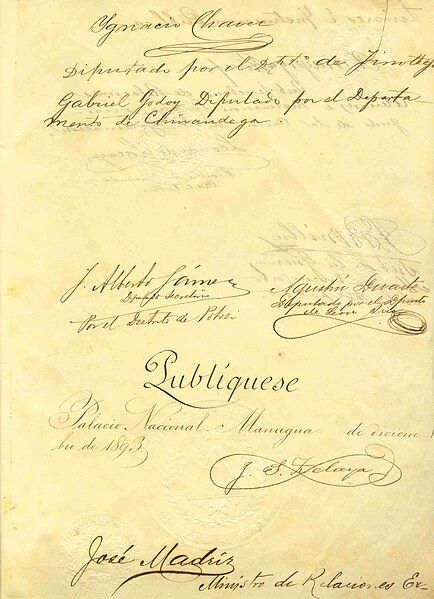 Ignacio Chaves
Diputado por el Dptº. de Jinoteg
Gabriel Godoy Diputado por el Departa
mento de Chinandega
J. Alberto Gámez
Diputado Secretario
Por el Distrito de Potosí
Agustín Duarte
Diputado por el Departo
de León
Publíquese
Palacio Nacional. Managua de diciem
bre de 1893.
J. S. Zelaya
José Madriz
Ministro de Relaciones Ex-